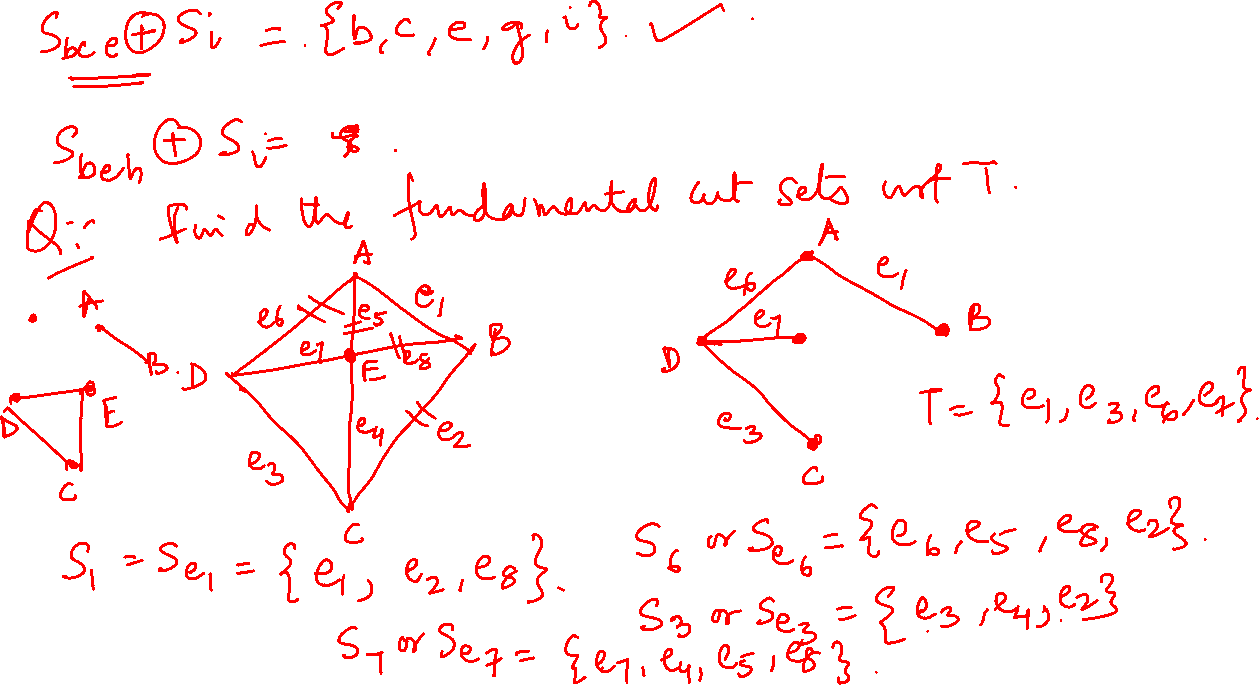 S_bce ⊕ S_i = {b, c, e, g, i}. ✓
S_beh ⊕ S_i =
Q:- Find the fundamental cut sets wrt T.
A
B.
D
E
C
A
e6
e5
e1
e7
E
e8
B
D
e4
e2
e3
C
A
e6
e1
e7
B
D
e3
C
T = {e1, e3, e6, e7}.
S1 = Se1 = {e1, e2, e8}.
S6 or Se6 = {e6, e5, e8, e2}.
S3 or Se3 = {e3, e4, e2}
S7 or Se7 = {e7, e4, e5, e8}.